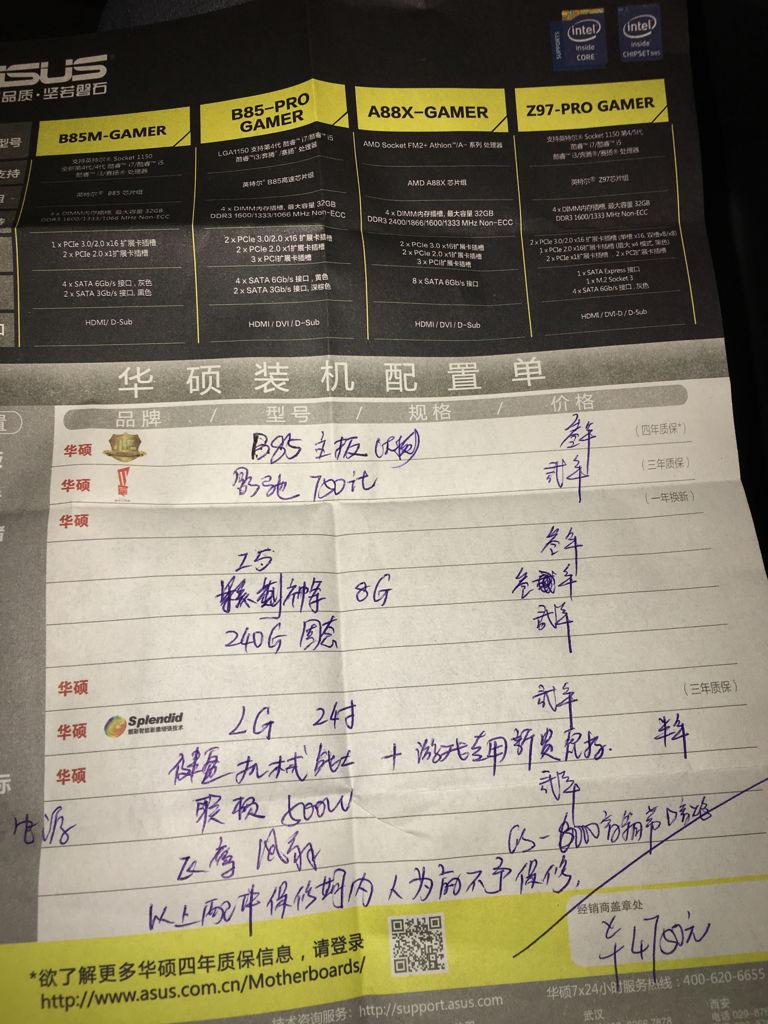 SUPPORTS intel inside CORE
intel inside CHIPSET
SUS
品质·坚若磐石
型号 B85M-GAMER B85-PRO GAMER A88X-GAMER Z97-PRO GAMER
支持
支持英特尔® Socket 1150
全新第4代/4代 酷睿™ i7/酷睿™ i5
酷睿™ i3/赛扬® 处理器
LGA1150 支持第4代 酷睿™ i7/酷睿™ i5
酷睿™i3/奔腾®/赛扬® 处理器
AMD Socket FM2+ Athlon™/A- 系列 处理器
支持英特尔® Socket 1150 第4/5代
酷睿™ i7/酷睿™ i5
酷睿™ i3/奔腾®/赛扬® 处理器
英特尔® B85 芯片组
英特尔® B85高速芯片组
AMD A88X 芯片组
英特尔® Z97芯片组
4 x DIMM内存插槽, 最大容量 32GB
DDR3 1600/1333/1066 MHz Non-ECC
4 x DIMM内存插槽, 最大容量 32GB
DDR3 1600/1333/1066 MHz Non-ECC
4 x DIMM内存插槽, 最大容量 32GB
DDR3 2400/1866/1600/1333 MHz Non-ECC
4 x DIMM内存插槽, 最大容量 32GB
DDR3 1600/1333 MHz Non-ECC
1 x PCIe 3.0/2.0 x16 扩展卡插槽
2 x PCIe 2.0 x1扩展卡插槽
2 x PCIe 3.0/2.0 x16 扩展卡插槽
2 x PCIe 2.0 x1扩展卡插槽
3 x PCI扩展卡插槽
2 x PCIe 3.0 x16扩展卡插槽
2 x PCIe 2.0 x1扩展卡插槽
3 x PCI扩展卡插槽
2 x PCIe 3.0/2.0 x16 扩展卡插槽 (单槽 x16, 双槽x8/x8)
1 x PCIe 2.0 x16扩展卡插槽 (最大 x4 模式, 黑色)
2 x PCIe x1扩展卡插槽, 2 x PCI扩展卡插槽
4 x SATA 6Gb/s 接口, 灰色
2 x SATA 3Gb/s 接口, 黑色
4 x SATA 6Gb/s 接口, 黄色
2 x SATA 3Gb/s 接口, 深棕色
8 x SATA 6Gb/s 接口
1 x SATA Express 接口
1 x M.2 Socket 3
4 x SATA 6Gb/s 接口, 灰色
HDMI/ D-Sub
HDMI / DVI / D-Sub
HDMI / DVI / D-Sub
HDMI / DVI-D / D-Sub
华硕装机配置单
品牌 / 型号 / 规格 / 价格
华硕 B85 主板(大板) 叁年 (四年质保*)
华硕 影驰 750ti 贰年 (三年质保)
华硕 (一年换新)
I5 叁年
神条 8G 叁年
240G 固态 贰年
华硕 (三年质保)
华硕 Splendid LG 24寸 贰年
华硕 键盘 机械 + 游戏专用 半年
电源 500W 贰年
风扇
以上配件保修期内人为的不予保修.
经销商盖章处
¥4700元
*欲了解更多华硕四年质保信息，请登录
http://www.asus.com.cn/Motherboards/
华硕7x24小时服务热线：400-620-6655
技术咨询服务：http://support.asus.com
武汉
西安